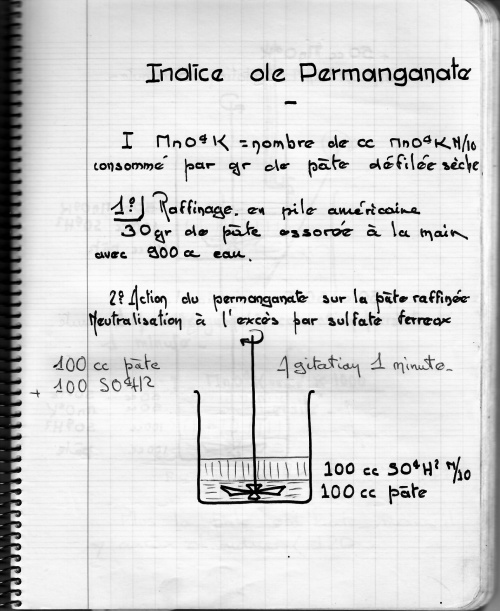 Indice de Permanganate
I MnO⁴K = nombre de cc MnO⁴K N/10
consommé par gr de pâte défilée sèche
1?) Raffinage. en pile américaine
30 gr de pâte essorée à la main
avec 900 cc eau.
2? Action du permanganate sur la pâte raffinée
Neutralisation à l'excès par sulfate ferreux
100 cc pâte
Agitation 1 minute.
+ 100 SO⁴H2
100 cc SO⁴H² N/10
100 cc pâte